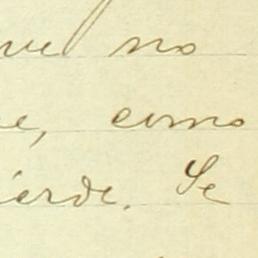 que no
e, como
ierde. Se